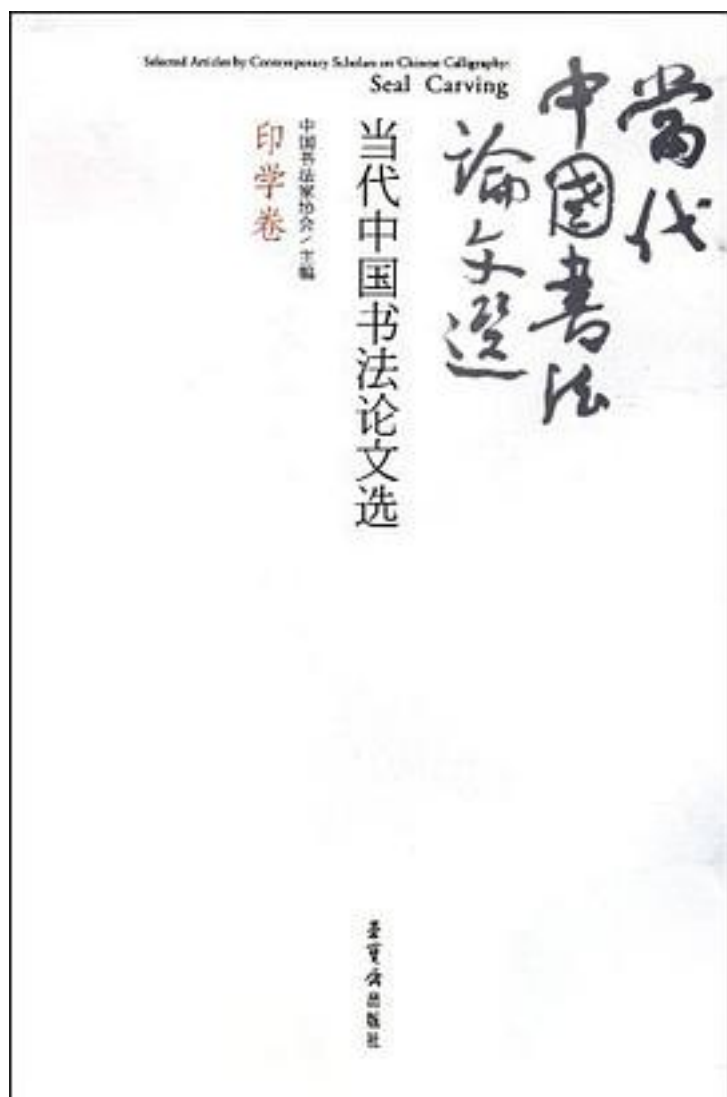 Selected Articles by Contemporary Scholars on Chinese Calligraphy:
Seal Carving
當代
中國書法
論文選
当代中国书法论文选
中国书法家协会／主编
印学卷
荣宝斋出版社